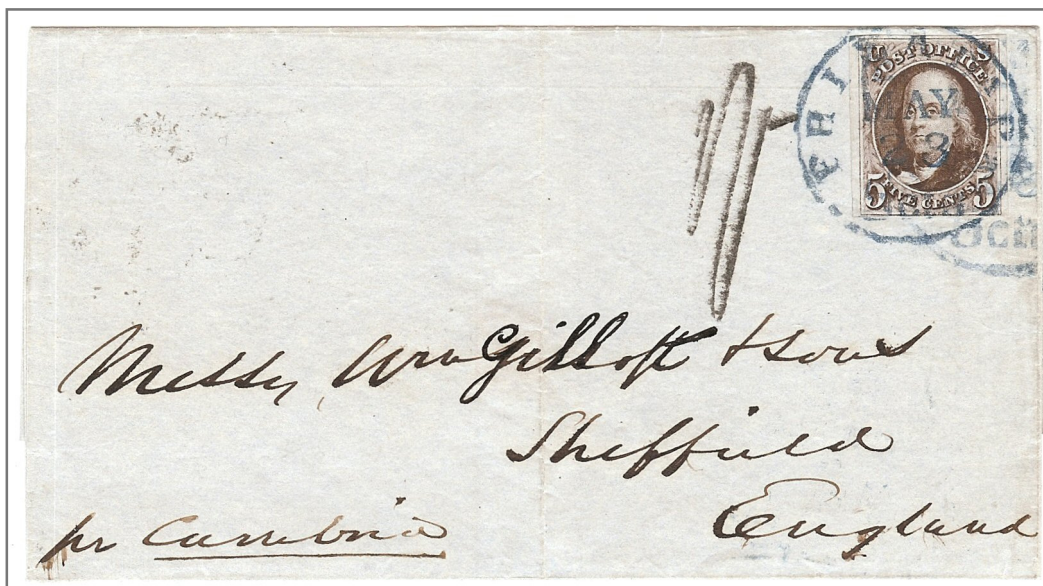 U S
POST OFFICE
MAY
23
5 FIVE CENTS 5
5 Cts
Messrs Wm Gillott & Sons
Sheffield
England
pr Cambria